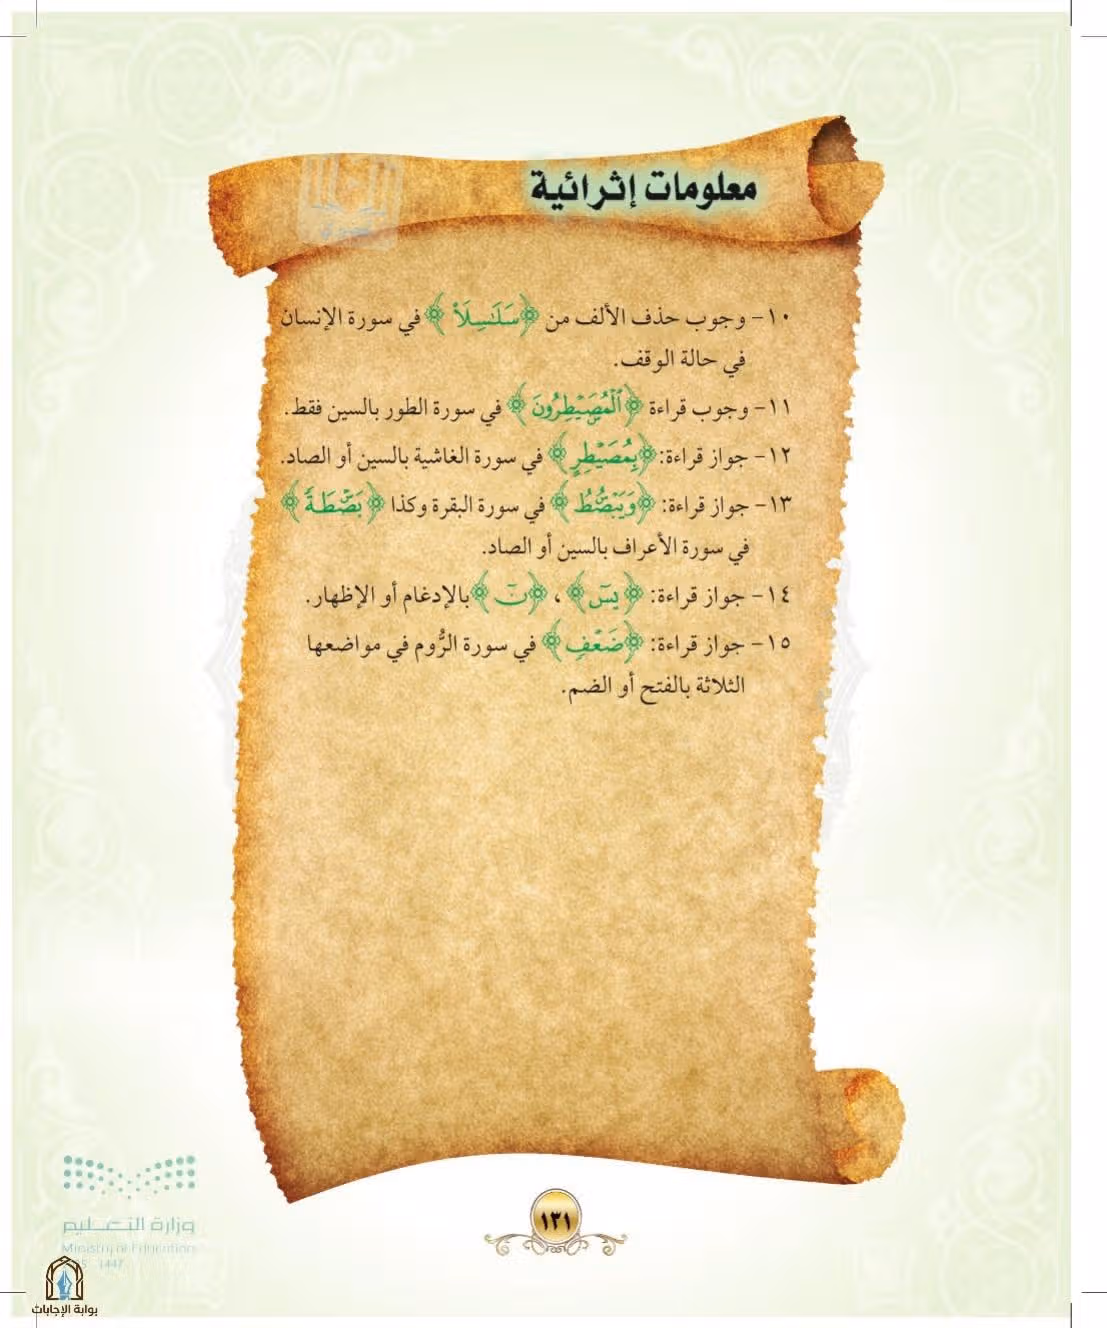 معلومات إثرائية
١٠- وجوب حذف الألف من ﴿سَلَٰسِلَاْ﴾ في سورة الإنسان
في حالة الوقف.
١١- وجوب قراءة ﴿ٱلْمُصَۜيْطِرُونَ﴾ في سورة الطور بالسين فقط.
١٢- جواز قراءة: ﴿بِمُصَيْطِرٍ﴾ في سورة الغاشية بالسين أو الصاد.
١٣- جواز قراءة: ﴿وَيَبْصُۜطُ﴾ في سورة البقرة وكذا ﴿بَصْۜطَةً﴾
في سورة الأعراف بالسين أو الصاد.
١٤- جواز قراءة: ﴿يسٓ﴾ ، ﴿نٓ﴾ بالإدغام أو الإظهار.
١٥- جواز قراءة: ﴿ضَعْفٍ﴾ في سورة الرُّوم في مواضعها
الثلاثة بالفتح أو الضم.
وزارة التعـــليم
Ministry of Education
1447
١٣١
بوابة الإجابات